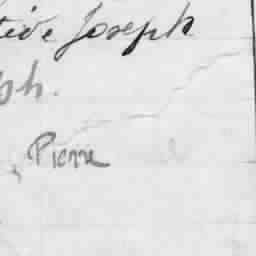 tive Joseph
ph.
Pierre